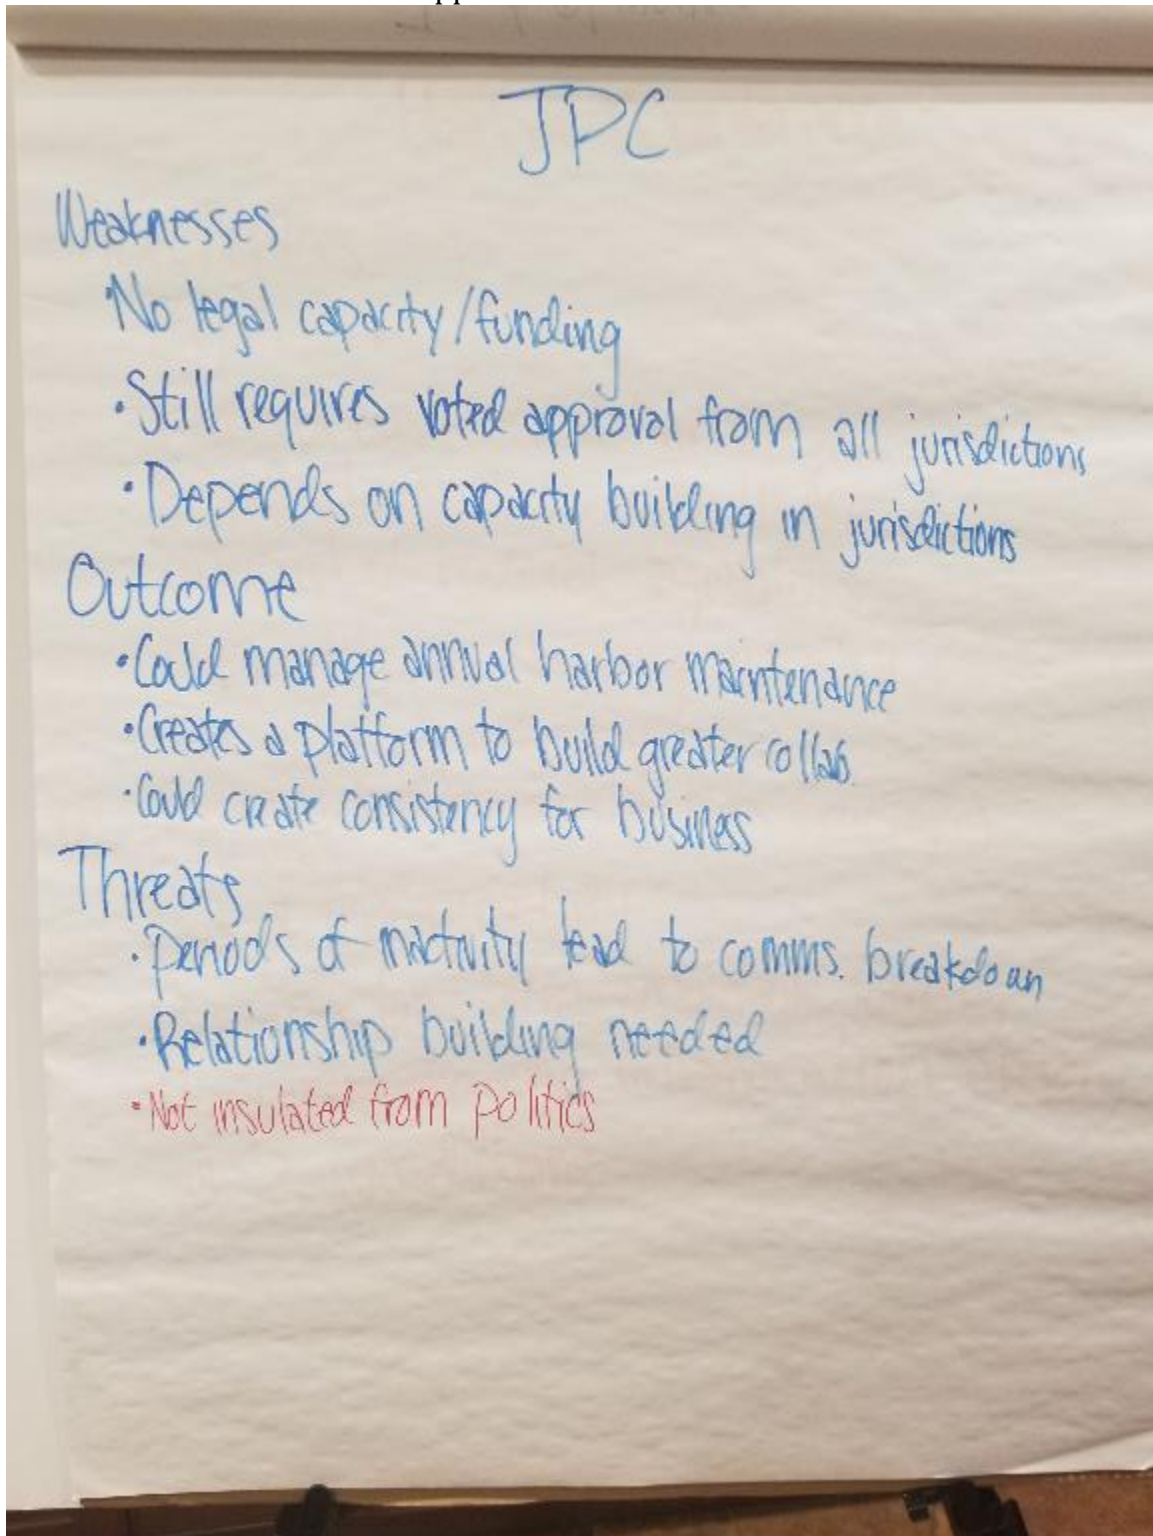 JPC
Weaknesses
• No legal capacity/funding
• Still requires voted approval from all jurisdictions
• Depends on capacity building in jurisdictions
Outcome
• Could manage annual harbor maintenance
• Creates a platform to build greater collab.
• Could create consistency for business
Threats
• Periods of inactivity lead to comms. breakdown
• Relationship building needed
• Not insulated from politics